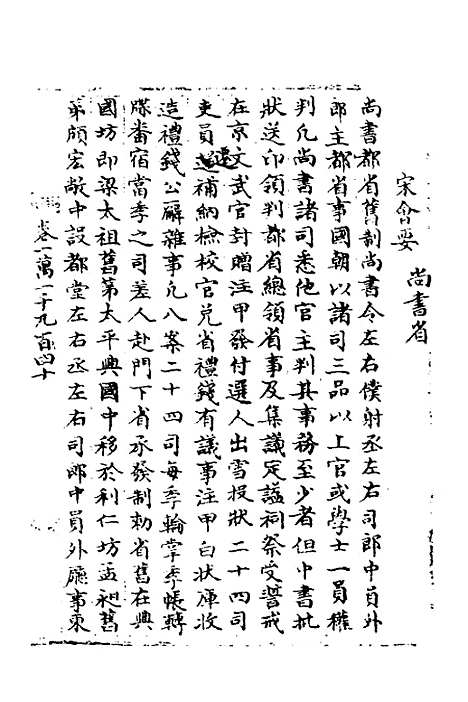 宋會要
尚書省
尚書都省舊制尚書令左右僕射丞左右司郎中員外
郎主都省事國朝以諸司三品以上官或學士一員權
判凡尚書諸司悉他官主判其事務至少者但中書批
狀送印領判都省總領省事及集議定謚祠祭受誓戒
在京文武官封贈注甲發付選人出雪投狀二十四司
吏員遷補納檢校官兌省禮錢有議事注甲白狀庫收
造禮錢公廨雜事凡八案二十四司每季輪掌季帳轉
牒番宿當季之司差人赴門下省承發制勅省舊在興
國坊即梁太祖舊第太平興國中移於利仁坊孟昶舊
第頗宏敞中設都堂左右丞左右司郎中員外廳事東
卷一萬一千九百四十